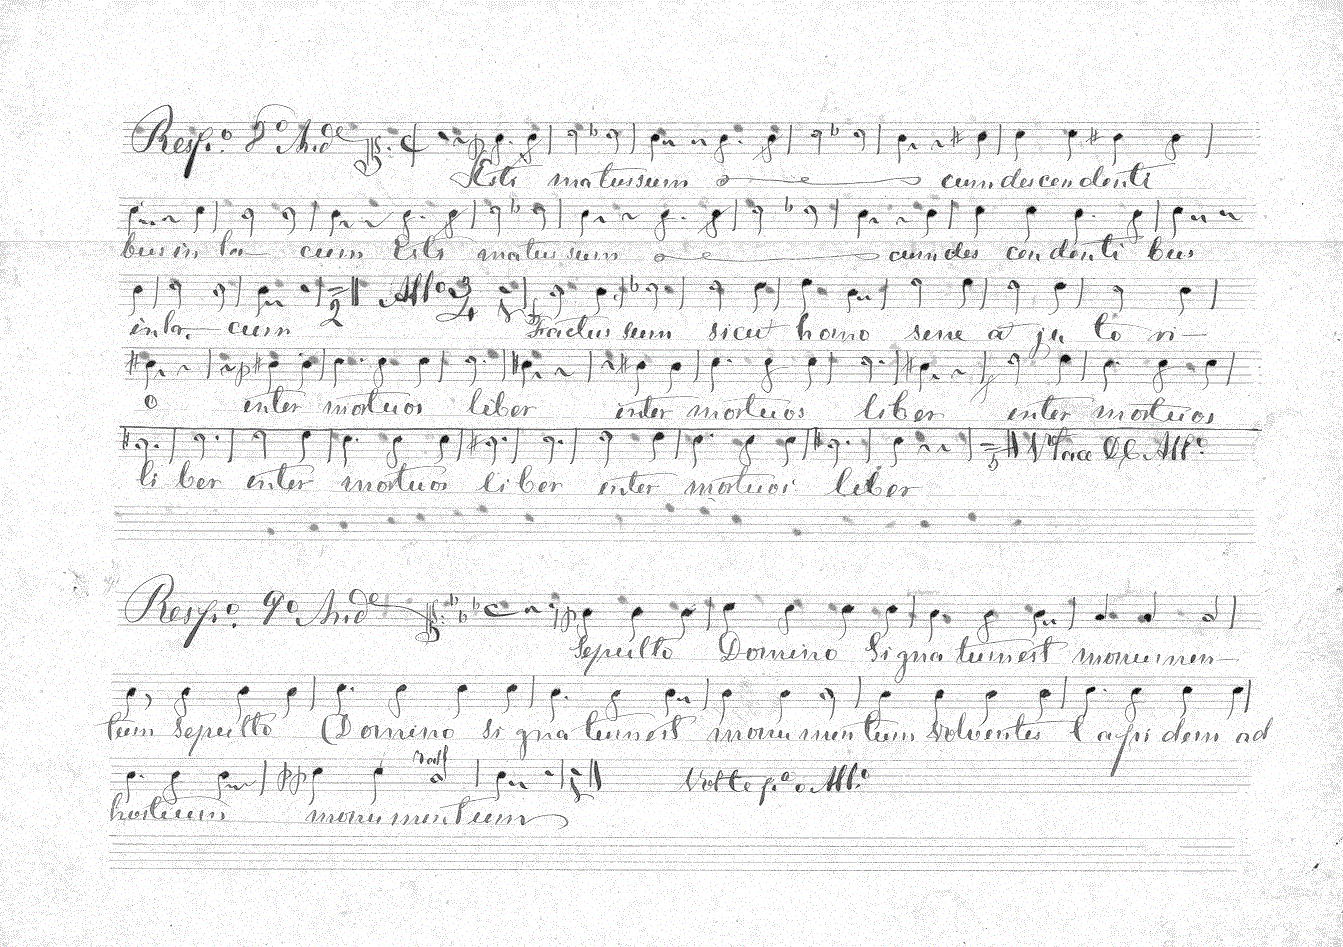 Respo. 8o And.e
Esti matussum cumdescendenti
bus in la cum Esti matus sum cumdes cendenti bus
All.o 3 4
inla cum Factus sum sicut homo sine a ju to ri
o enter mortuos liber enter mortuos liber enter mortuos
li ber enter mortuos liber enter mortuos liber
Respo. 9o And.e
Sepulto Domino Signa tumest monumen
tum sepulto Domino si gna tumest monumentum Volventes lapi dem ad
rall
Volte p.a o All.o
hostium monumentum